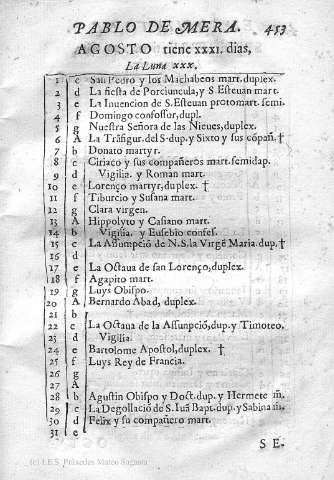 PABLO DE MERA. 453
AGOSTO tiene XXXI. dias,
La Luna XXX.
1 c San Pedro y los Machabeos mart.duplex.
2 d La fiesta de Porciuncula, y S. Esteuan mart.
3 e La Inuencion de S. Esteuan protomart. semi.
4 f Domingo confessor, dupl.
5 g Nuestra Señora de las Nieues, duplex.
6 A La Trãsfigur. del S. dup. y Sixto y sus cõpañ. †
7 b Donato martyr.
8 c Ciriaco y sus compañeros mart. semidup.
9 d Vigilia. y Roman mart.
10 e Lorenço martyr, duplex. †
11 f Tiburcio y Susana mart.
12 g Clara virgen.
13 A Hippolyto y Casiano mart.
14 b Vigilia. y Eusebio confes.
15 c La Assumpciõ de N. S. la Virgẽ Maria. dup. †
16 d
17 e La Octaua de san Lorenço, duplex.
18 f Agapito mart.
19 g Luys Obispo.
20 A Bernardo Abad, duplex.
21 b
22 c La Octaua de la Assunpciõ, dup. y Timoteo.
23 d Vigilia.
24 e Bartolome Apostol, duplex. †
25 f Luys Rey de Francia.
26 g
27 A
28 b Agustin Obispo y Doct. dup. y Hermete m̃.
29 c La Degollació de S. Iuã Bapt. dup. y Sabina m̃.
30 d Felix y su compañero mart.
31 e
S E.
(c) I.E.S. Práxedes Mateo Sagasta